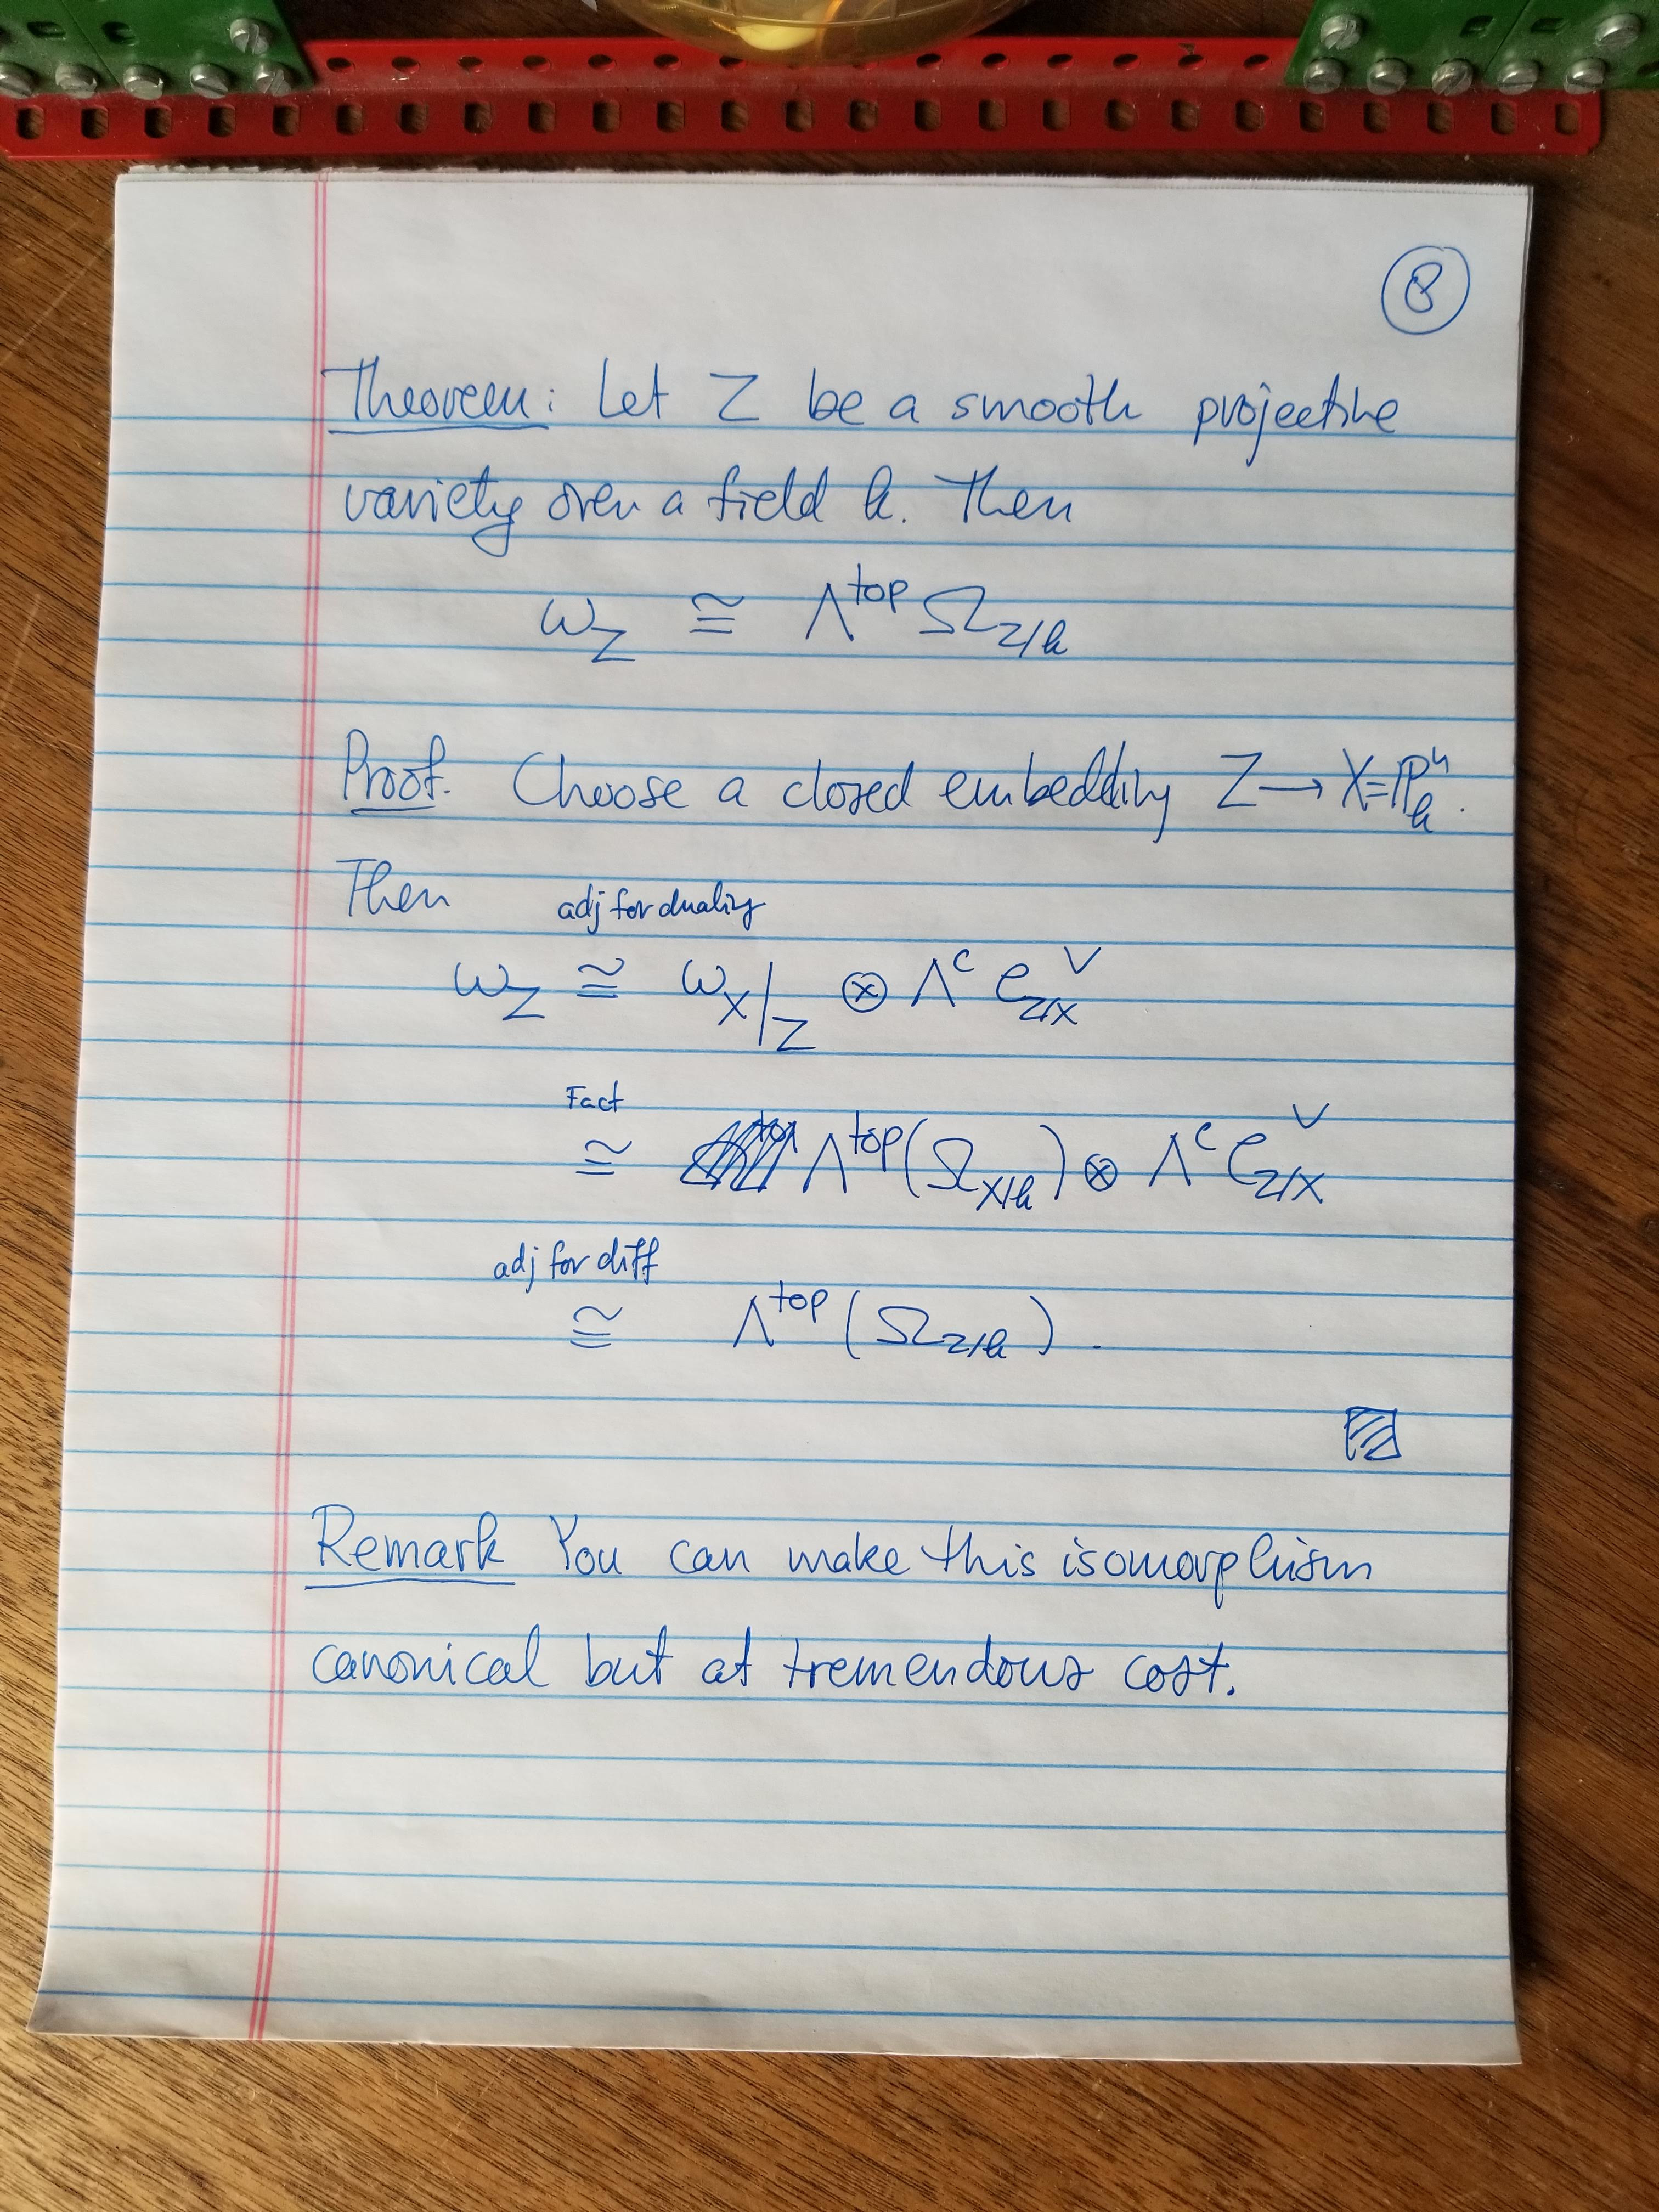 8
Theorem: Let Z be a smooth projective
variety over a field k. Then
ω_Z ≅ Λ^top Ω_{Z/k}
Proof. Choose a closed embedding Z → X = ℙ^n_k.
Then
adj for duality
ω_Z ≅ ω_X|_Z ⊗ Λ^c C_{Z/X}^∨
Fact
≅ Λ^top(Ω_{X/k}) ⊗ Λ^c C_{Z/X}^∨
adj for diff
≅ Λ^top(Ω_{Z/k}).
Remark You can make this isomorphism
canonical but at tremendous cost.